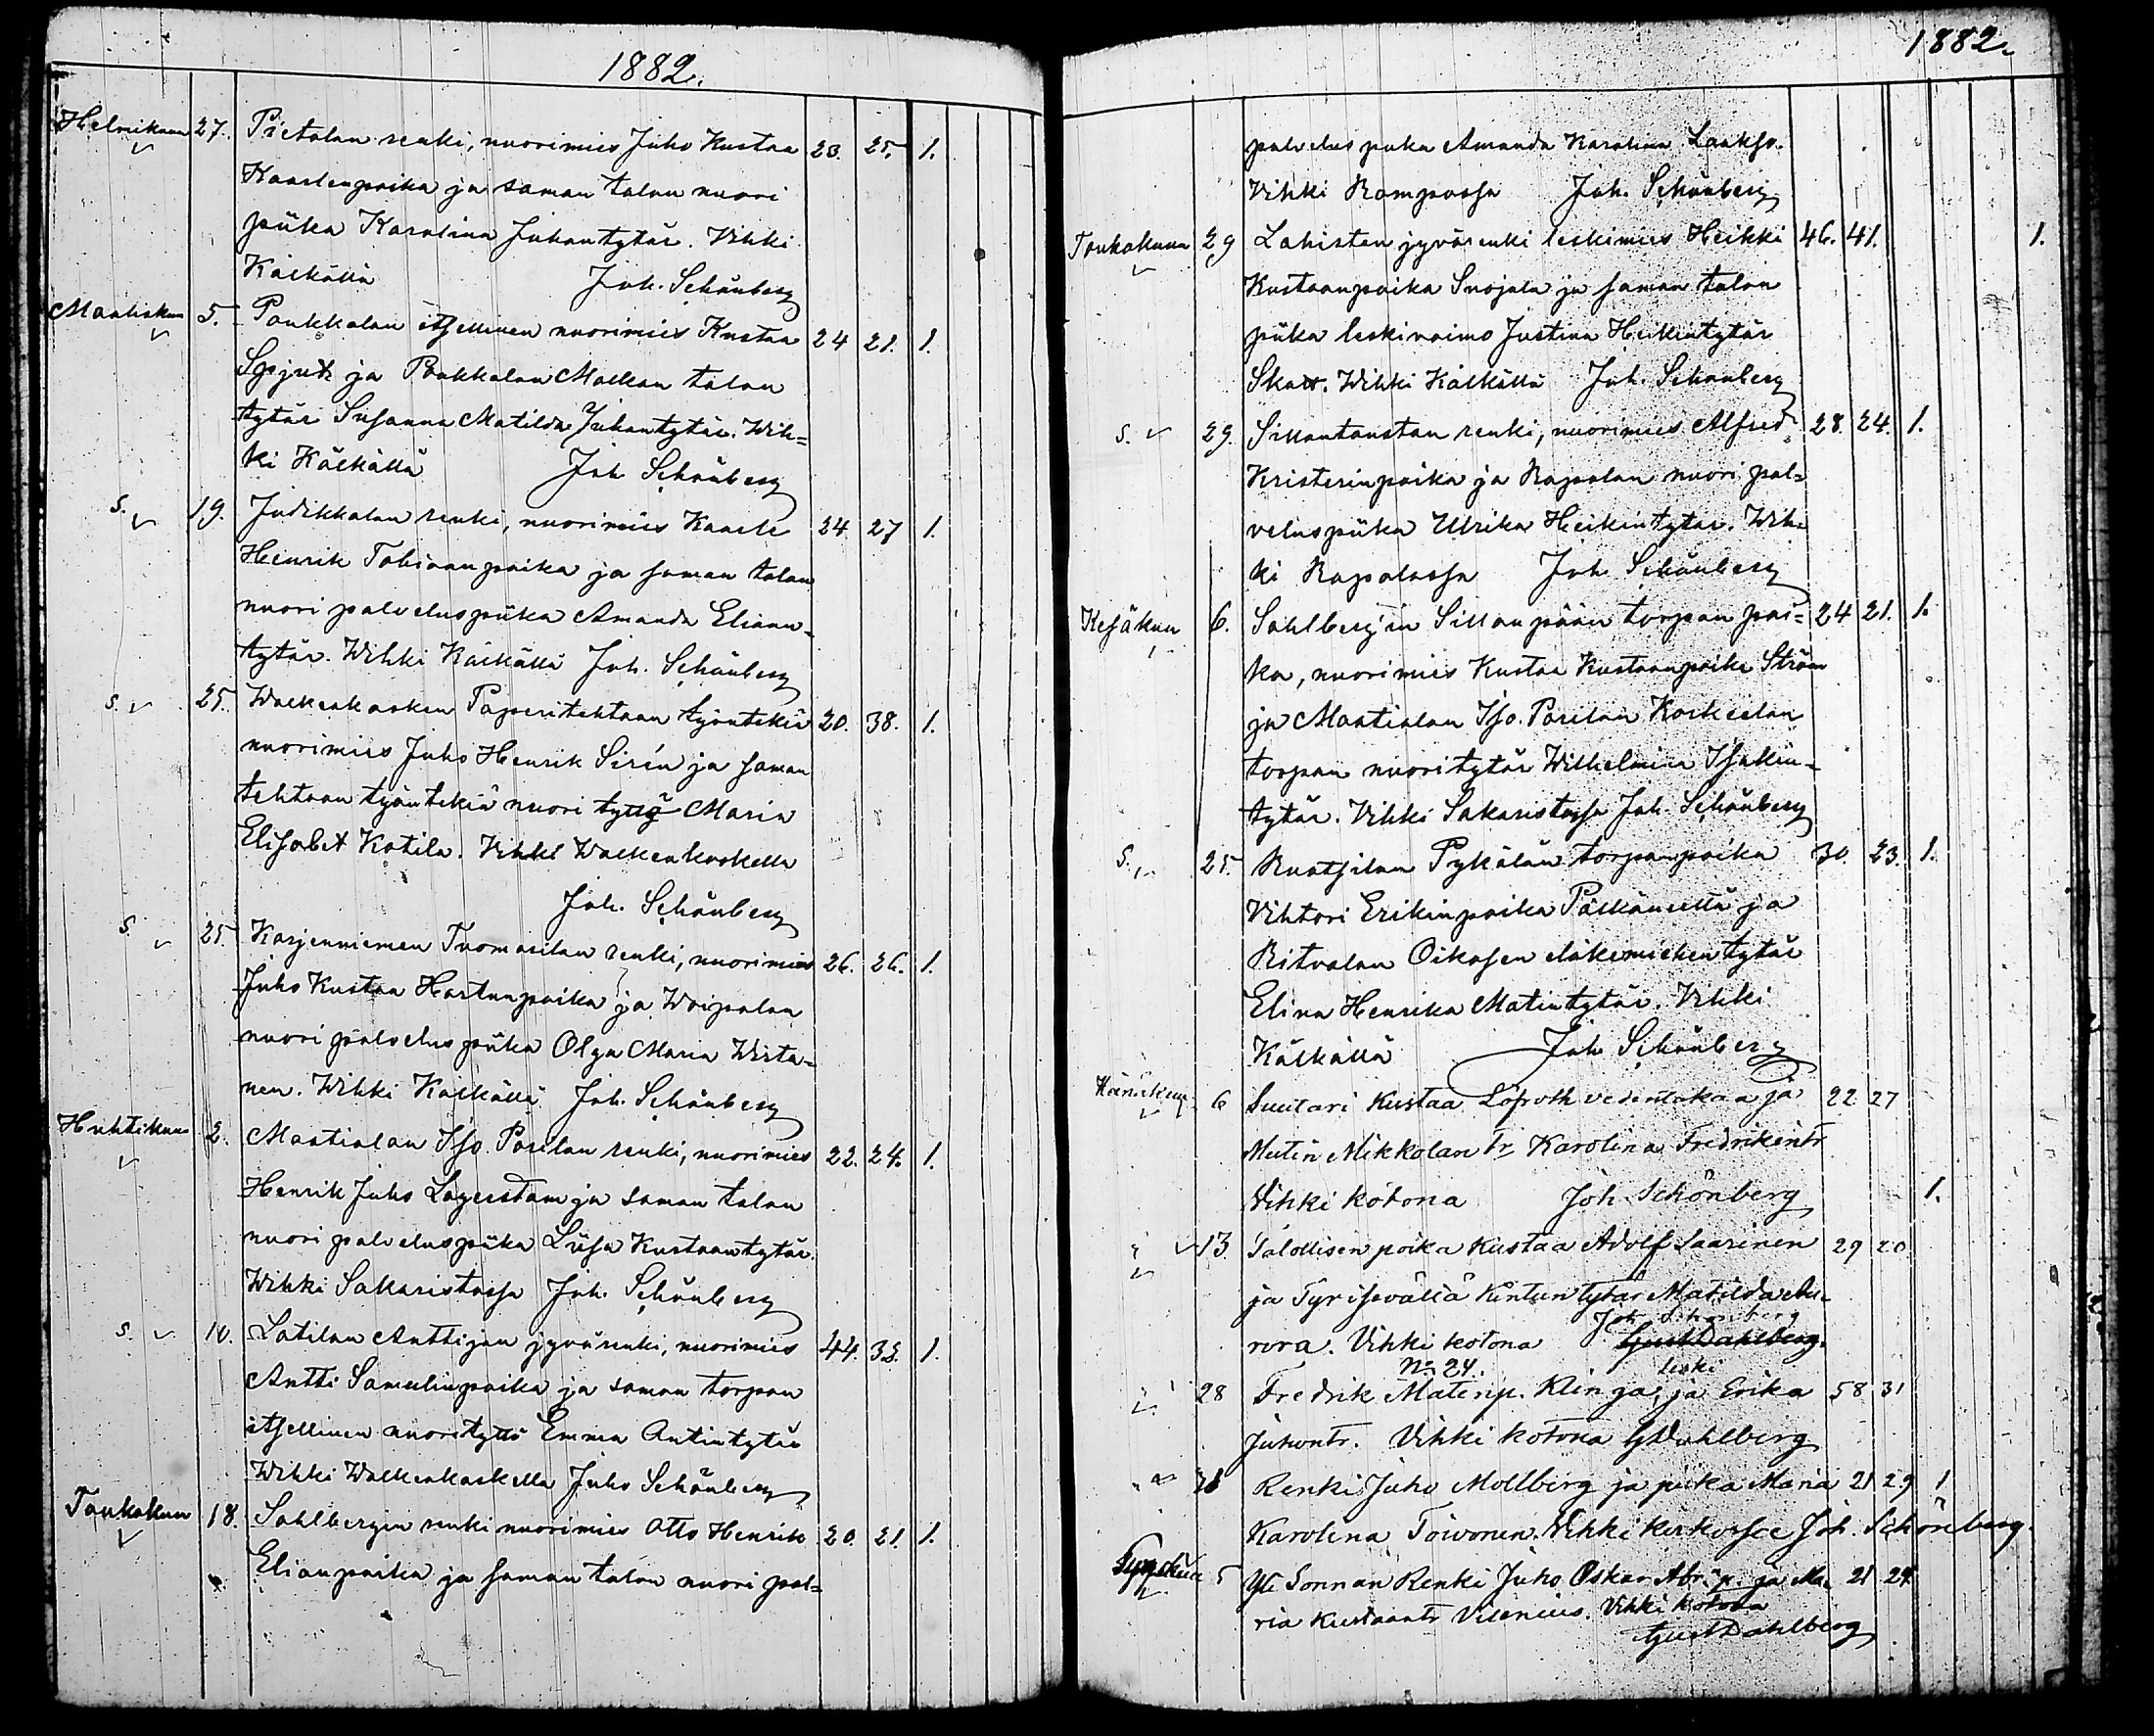 1882.
Helmikuun 27. Pietolan renki, nuorimies Juho Kustaa 23. 25. 1.
Kaarlenpoika ja saman talon nuori
piika Karolina Juhontytär. Vihki
Kälkällä Joh. Schönberg
Maalisk. 5. Paukkolan itsellinen nuorimies Kustaa 24 21. 1.
ja Paukkolan Mälkän talon
tytär Susanna Matilda Juhontytär. Wih=
ki Kälkällä Joh Schönberg
S. 19. Judikkalan renki, nuorimies Kaarle 24 27 1.
Henrik Tobiaanpoika ja saman talon
nuori palveluspiika Amanda Elian=
tytär. Wihki Kälkällä Joh. Schönberg
S. 25. Walkeakosken Paperitehtaan työntekiä 20. 38. 1.
nuorimies Juho Henrik Sirén ja saman
tehtaan työntekiä nuori tyttö Maria
Elisabet Kotila. Vihki Walkeakoskella
Joh. Schönberg
S. 25. Karjenniemen Tuomarilan renki, nuorimies 26. 26. 1.
Juho Kustaa Hartunpoika ja Woipalan
nuori palveluspiika Olga Maria Wirta=
nen. Wihki Kälkällä Joh. Schönberg
Huhtikuu 2. Maatialan Iso Parilan renki, nuorimies 22. 24. 1.
Henrik Juho Lagerstam ja saman talon
nuori palveluspiika Liisa Kustaantytär.
Wihki Sakaristossa Joh. Schönberg
S. 10. Lotilan Anttijan jyvärenki, nuorimies 44. 38. 1.
Antti Samulinpoika ja saman torpan
itsellinen nuorityttö Emma Antintytär
Wihki Walkeakoskella Juho Schönberg
Toukokuu 18. Sahlbergin renki nuorimies Otto Henrik 20. 21. 1.
Elianpoika ja saman talon nuori pal=
1882.
palvelus piika Amanda Karolina Laakso.
Vihki Joh. Schönberg
Toukokuun 29 Lahisten jyvärenki leskimies Heikki 46. 41. 1.
Kustaanpoika Suojala ja saman talon
piika leskivaimo Justina Heikintytär
Skatt. Wihki Kälkällä Joh. Schönberg
S. 29. Sillantaustan renki, nuorimies Alfred 28. 24. 1.
Kristerinpoika ja Rapalan nuori pal=
veluspiika Ulrika Heikintytär. Wih=
ki Rapalassa Joh. Schönberg
Kesäkuu 6. Sahlberg'in Sillanpään torpan poi= 24 21. 1.
ka, nuorimies Kustaa Kustaanpoika Ström
ja Maatialan Iso. Parilan Koskelan
torpan nuori tytär Wilhelmina Isakin=
tytär. Vihki Sakaristossa Joh. Schönberg
S. 25. Ruotsilan Pykälän torpanpoika 30. 23. 1.
Vihtori Erikinpoika Pälkäneeltä ja
Ritvalan Oikasen eläkemiehen tytär
Elina Henrika Matintytär. Vihki
Kälkällä Joh Schönberg
Heinäkuu 6 Suutari Kustaa Löfroth ja 22 27
Mutin Mikkolan tr Karolina Fredrikintr
Vihki kotona Joh Schönberg 1.
13. Talollisen poika Kustaa Adolf Saarinen 29 20
ja Tyrisevältä Kintun tytär Matilda Au=
rora. Vihki kotona Joh Schönberg Gust Dahlberg.
No 24. leski
28 Fredrik Matinp. Klinga, ja Erika 58 31
Juhontr. Vihki kotona G Dahlberg
Renki Juho Mollberg ja piika Maria 21 29 1
Karolina Toivonen. Vihki kirkossa Joh. Schönberg.
Syyskuu 5 Yli Sonnan Renki Juho Oskar Abr.p. ja Ma= 21 24
ria Kustaantr Vilenius. Vihki kotona
Gust Dahlberg